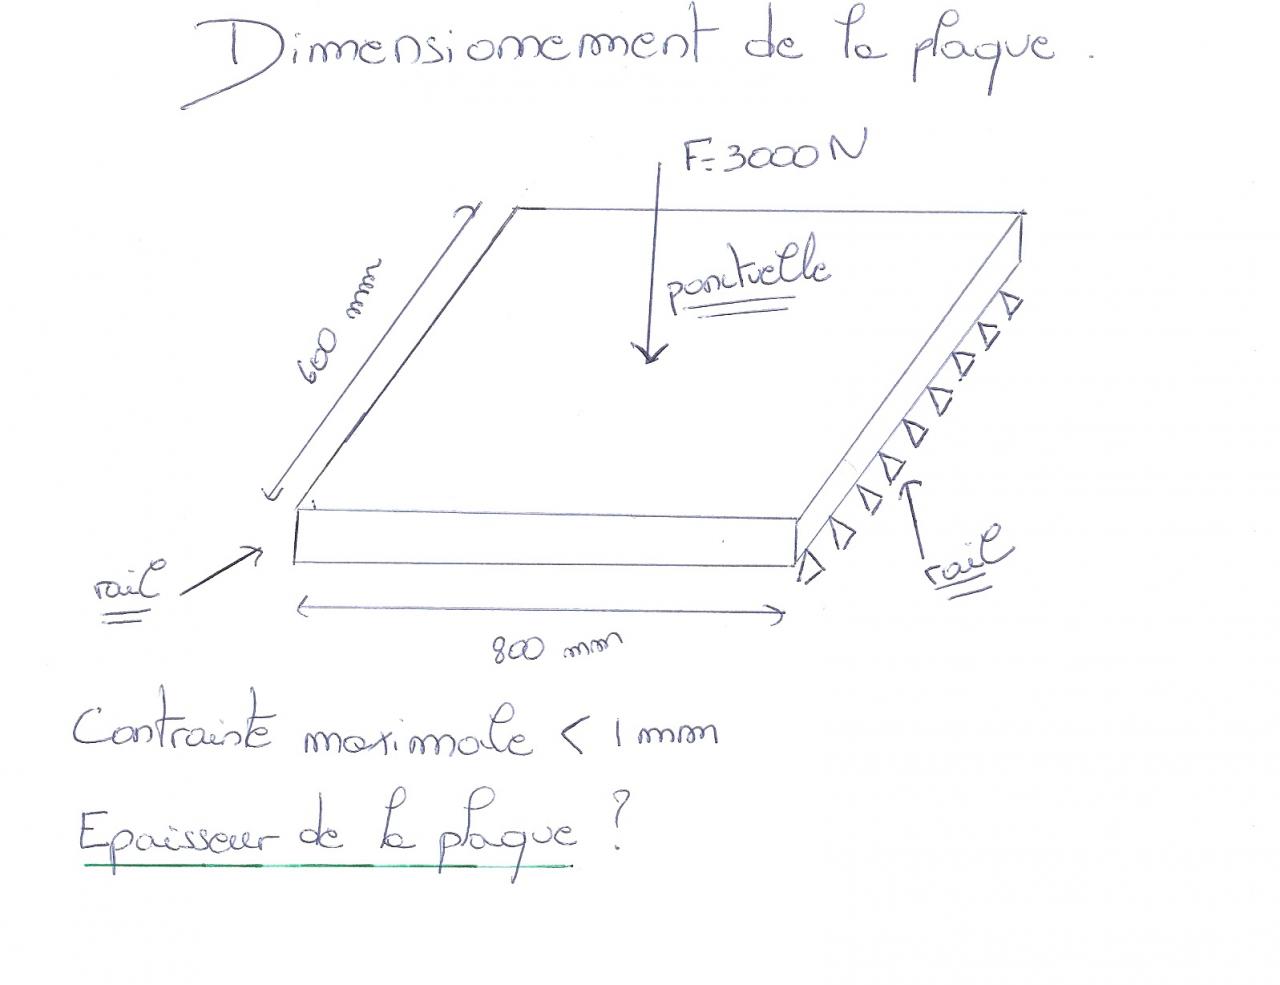 Dimensionnement de la plaque.
F=3000N
ponctuelle
600 mm
rail
rail
800 mm
Contrainte maximale < 1 mm
Epaisseur de la plaque ?